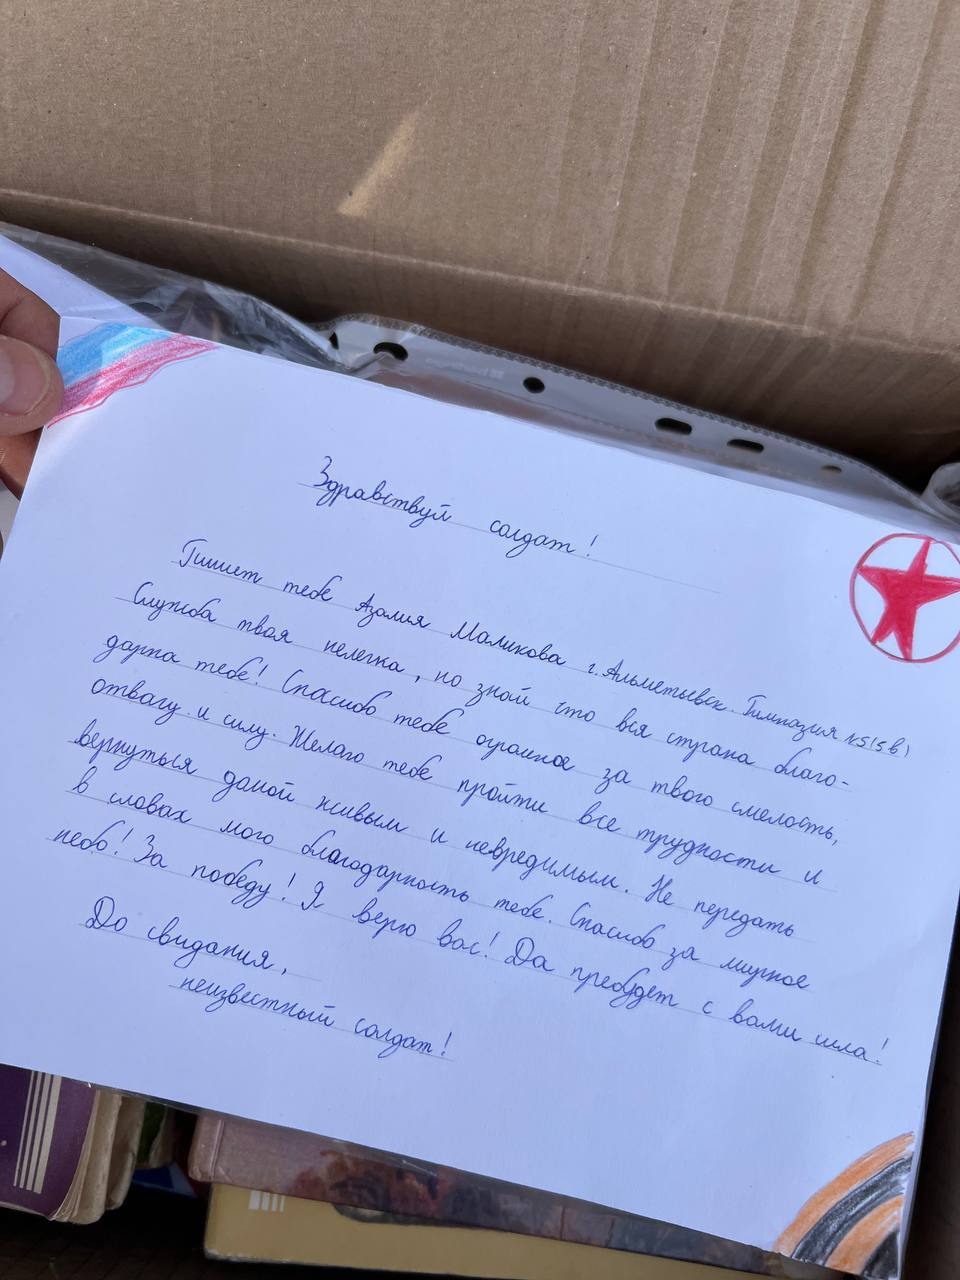 Здравствуй солдат!
Пишет тебе Азалия Маликова г.Альметьевск. Гимназия №5(5в)
Служба твоя нелегка, но знай что вся страна благо-
дарна тебе! Спасибо тебе огромное за твою смелость,
отвагу и силу. Желаю тебе пройти все трудности и
вернуться домой живым и невредимым. Не передать
в словах мою благодарность тебе. Спасибо за мирное
небо! За победу! Я верю вас! Да пребудет с вами сила!
До свидания,
неизвестный солдат!